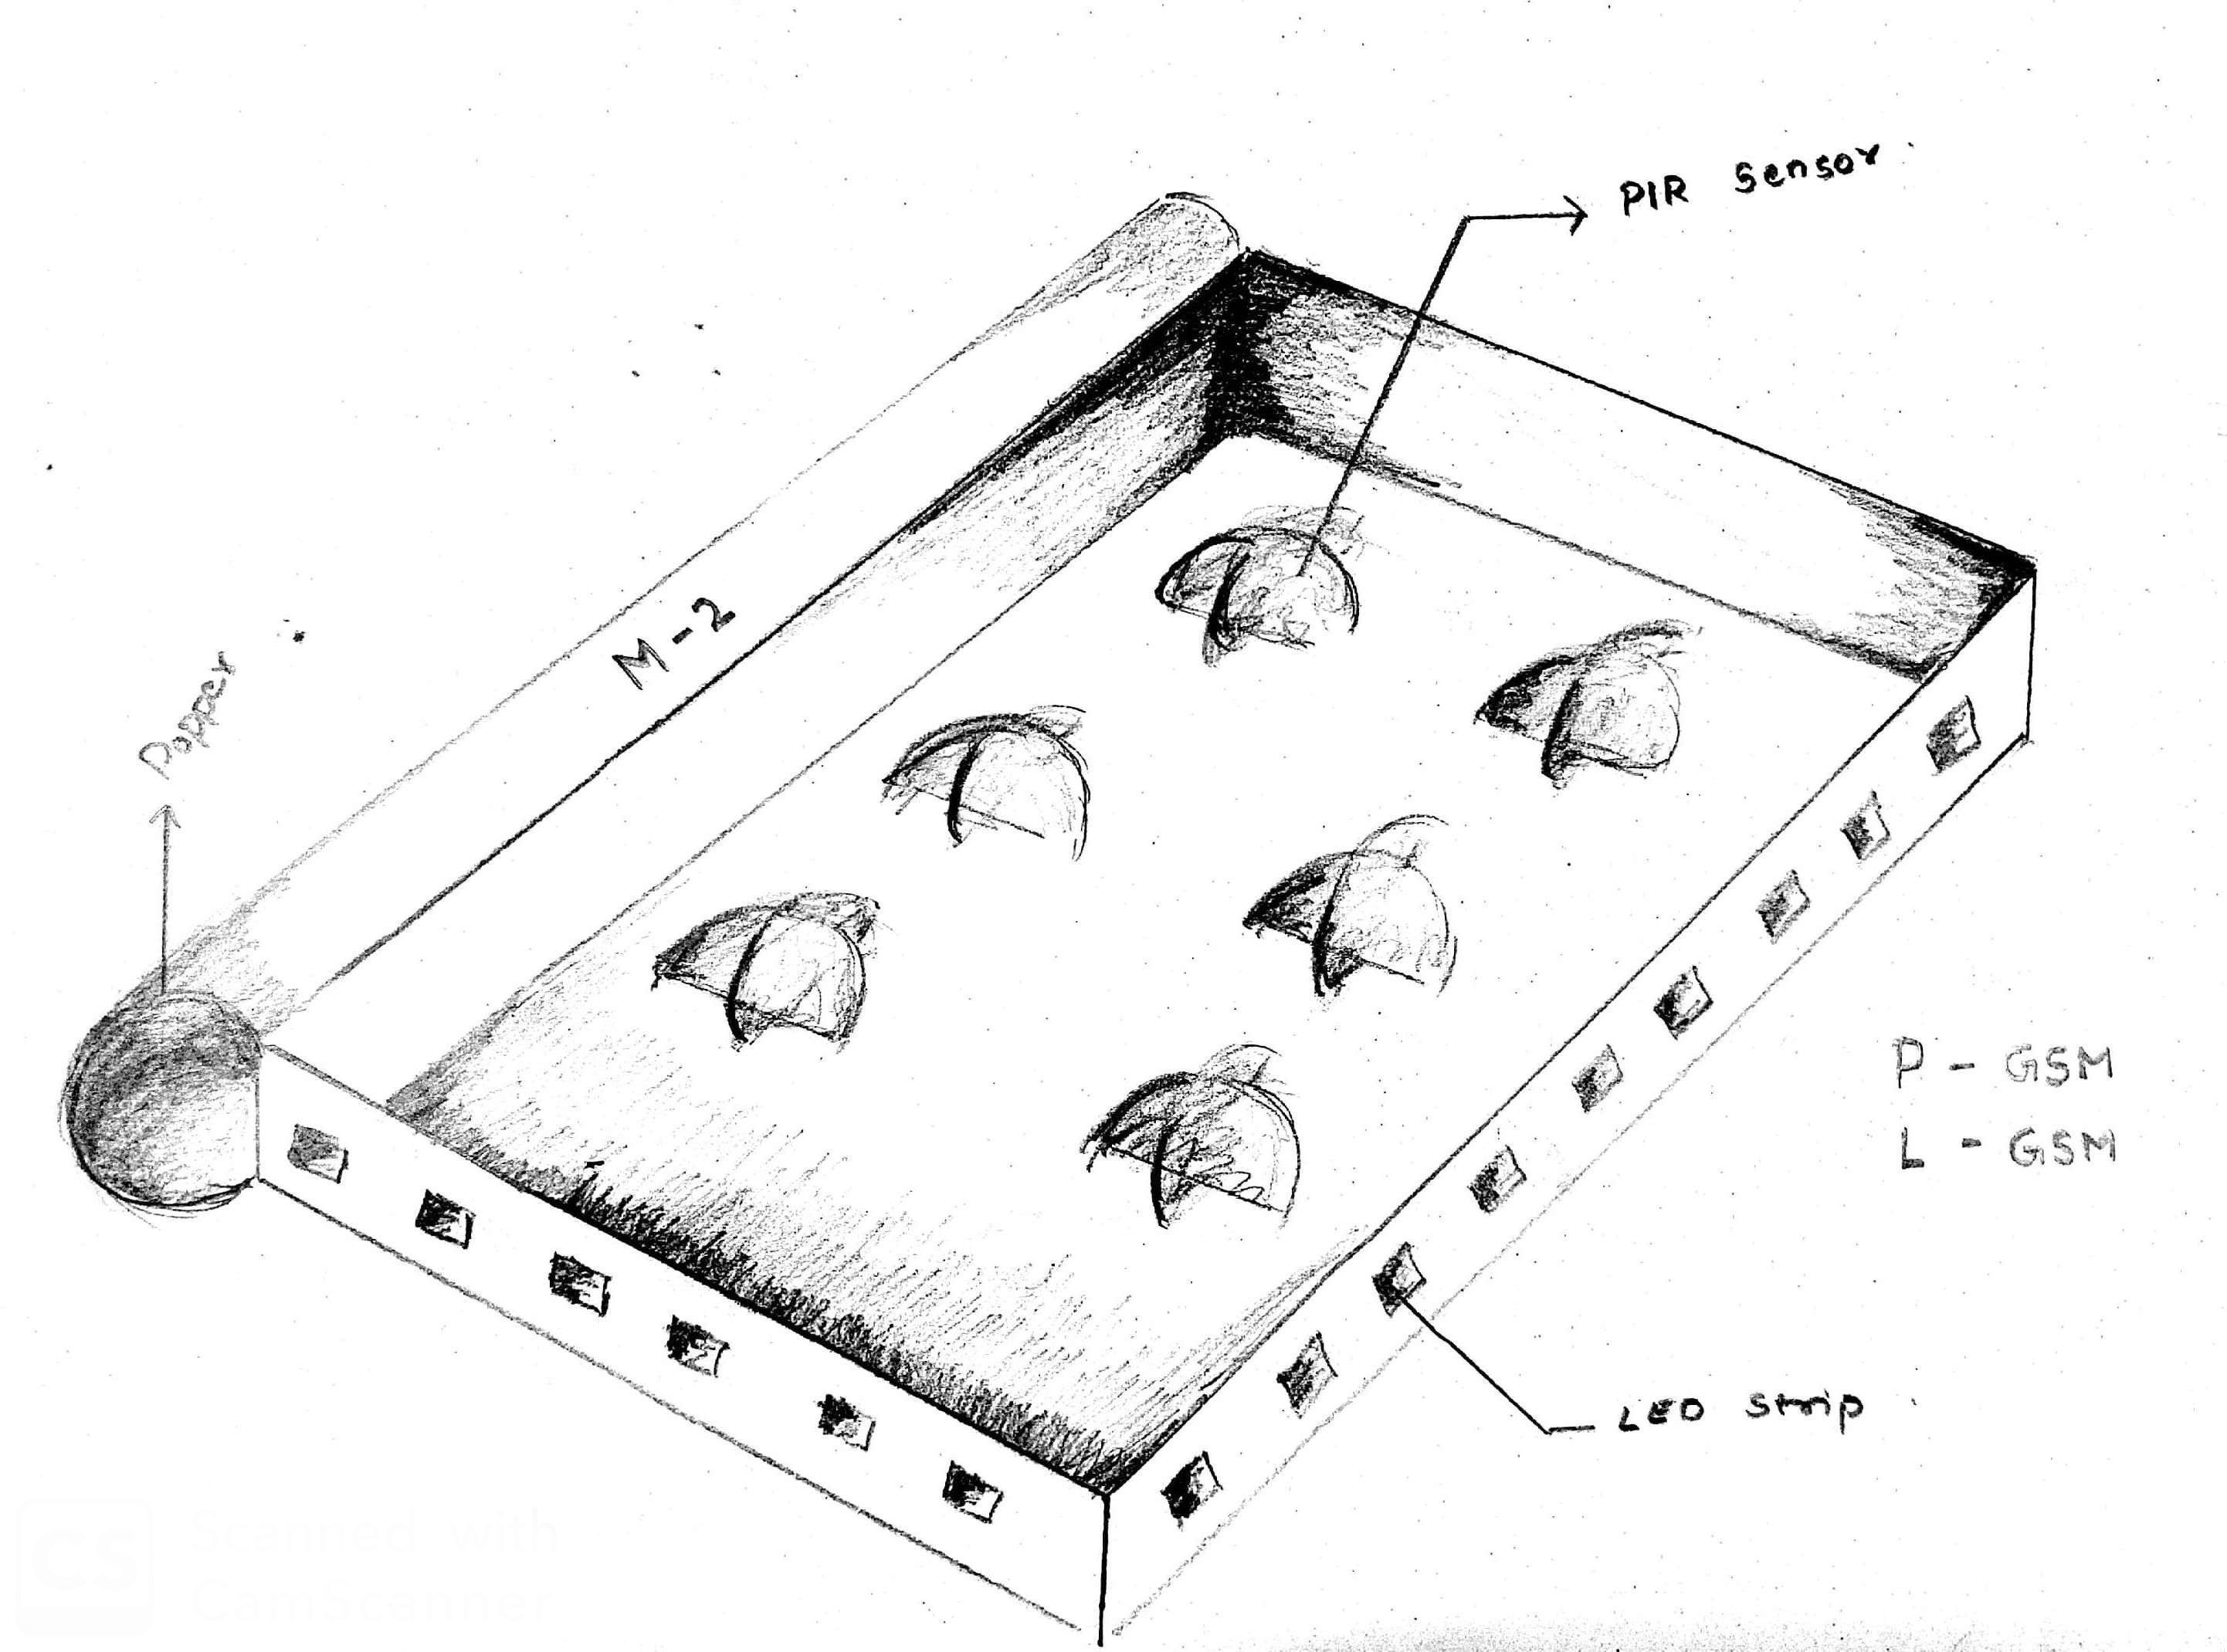 PIR Sensor
M-2
Popper
P - GSM
L - GSM
LED Strip
CS
Scanned with
CamScanner